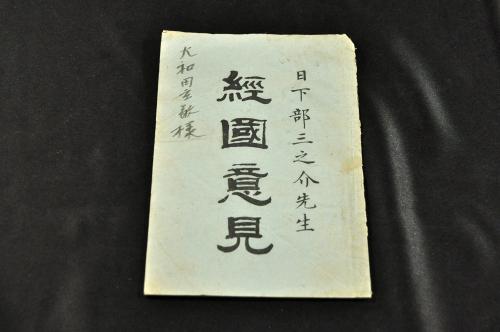 日下部三之介先生
經國意見
大和田建樹様